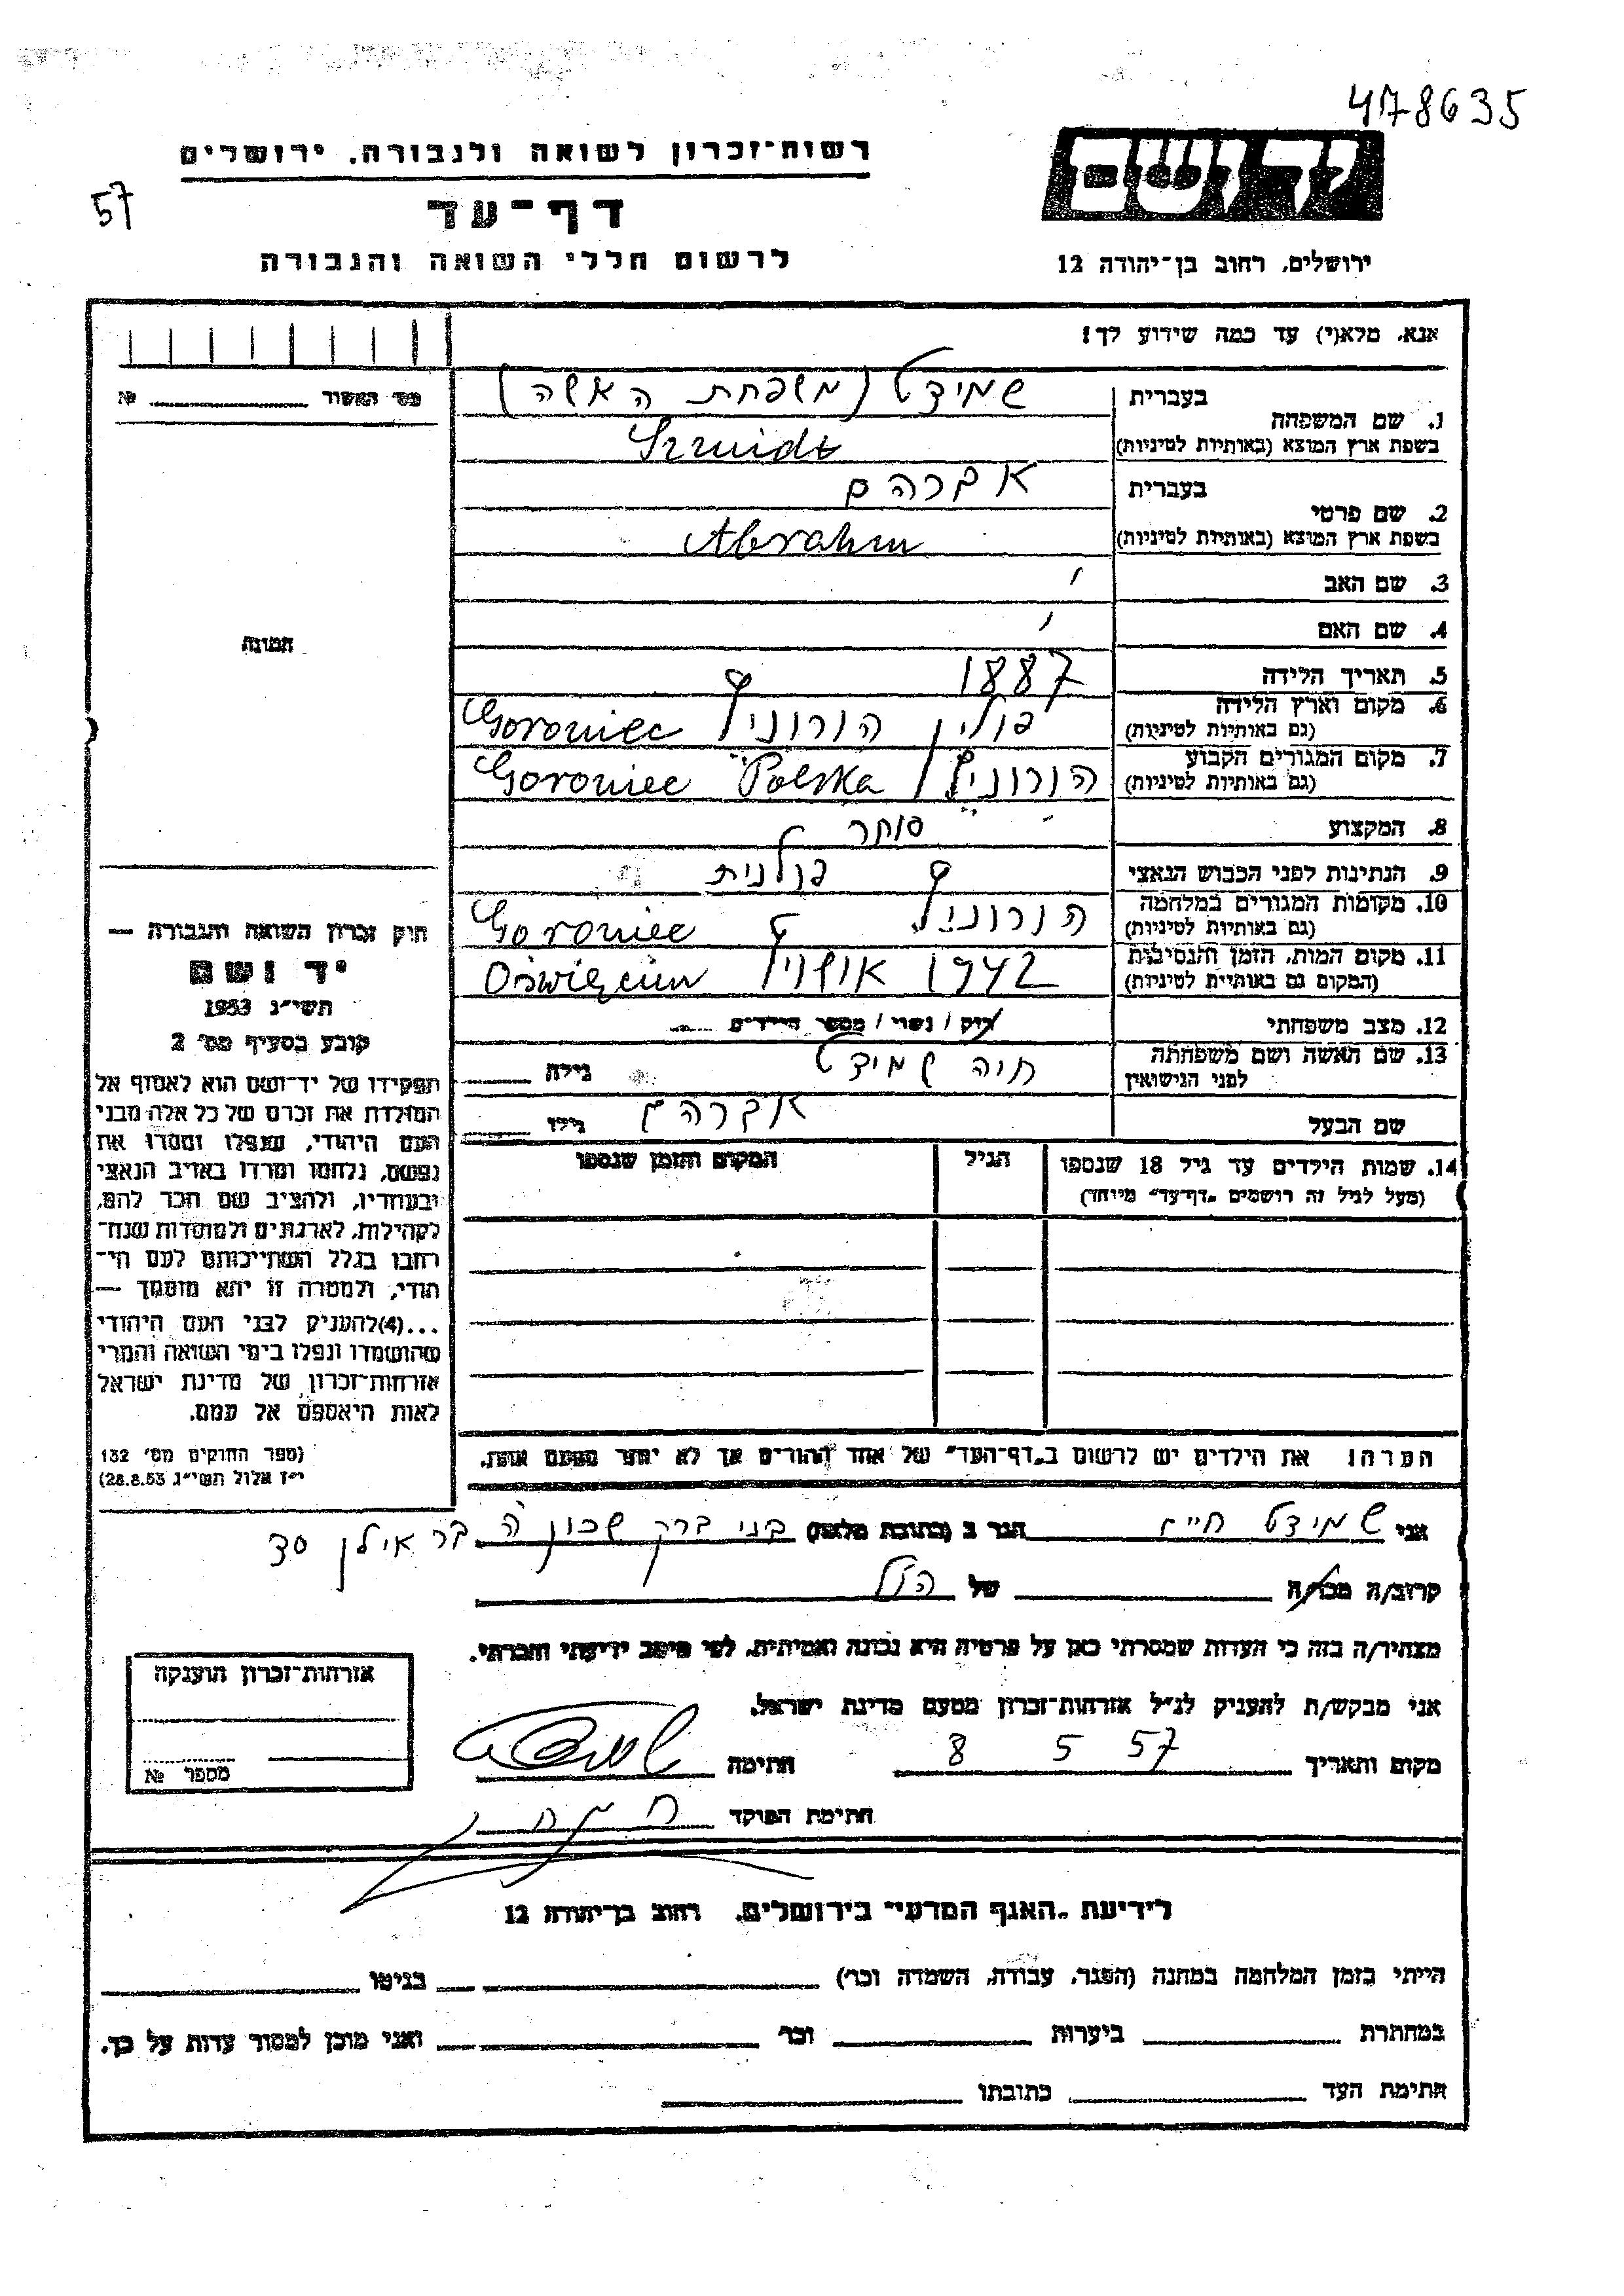 478635
רשות-זכרון לשואה ולגבורה, ירושלים
יד ושם
57
דף-עד
לרשום חללי השואה והגבורה
ירושלים, רחוב בן-יהודה 12
אנא, מלא(י) עד כמה שידוע לך!
מס' האשור № ______
בעברית שמידט (משפחת האשה)
1. שם המשפחה
בשפת ארץ המוצא (באותיות לטיניות) Szmidt
בעברית אברהם
2. שם פרטי
בשפת ארץ המוצא (באותיות לטיניות) Abrahm
3. שם האב
4. שם האם
תמונה
5. תאריך הלידה 1887
6. מקום וארץ הלידה פולין הורוניץ Goroniec
(גם באותיות לטיניות)
7. מקום המגורים הקבוע הורוניץ / Goroniec Polska
(גם באותיות לטיניות)
8. המקצוע סוחר
9. הנתינות לפני הכבוש הנאצי פולנית
10. מקומות המגורים במלחמה הורוניץ Goroniec
(גם באותיות לטיניות)
11. מקום המות, הזמן והנסיבות 1942 אושויץ Oświęcim
(המקום גם באותיות לטיניות)
12. מצב משפחתי רווק / נשוי / מספר הילדים
13. שם האשה ושם משפחתה חיה שמידט גילה
לפני הנישואין
שם הבעל אברהם גילו
14. שמות הילדים עד גיל 18 שנספו הגיל המקום והזמן שנספו
(מעל לגיל זה רושמים "דף-עד" מיוחד)
חוק זכרון השואה והגבורה —
יד ושם
תשי"ג 1953
קובע בסעיף מס' 2
תפקידו של יד-ושם הוא לאסוף אל
המולדת את זכרם של כל אלה מבני
העם היהודי, שנפלו ומסרו את
נפשם, נלחמו ומרדו באויב הנאצי
ובעוזריו, ולהציב שם וזכר להם,
לקהילות, לארגונים ולמוסדות שנח-
רחבו בגלל השתייכותם לעם הי-
הודי, ולמטרה זו יהא מוסמך —
...(4)להעניק לבני העם היהודי
שהושמדו ונפלו בימי השואה והמרי
אזרחות-זכרון של מדינת ישראל
לאות היאספם אל עמם.
(ספר החוקים מס' 132
י"ז אלול תשי"ג 28.8.53)
הערה: את הילדים יש לרשום ב"דף-העד" של אחד ההורים אך לא יותר מפעם אחת.
אני שמידט חיים הגר ב (כתובת מלאה) בני ברק שכון ה בר אילן 30
קרוב/ה מכר/ה של הנ"ל
מצהיר/ה בזה כי העדות שמסרתי כאן על פרטיה היא נכונה ואמיתית, לפי מיטב ידיעתי והכרתי.
אני מבקש/ת להעניק לנ"ל אזרחות-זכרון מטעם מדינת ישראל.
מקום ותאריך 8 5 57 חתימה
חתימת הפוקד
אזרחות-זכרון הוענקה
מספר №
לידיעת "האגף המדעי" בירושלים, רחוב בן-יהודה 12
הייתי בזמן המלחמה במחנה (הסגר, עבודה, השמדה וכו') בגיטו
במחתרת ביערות וכו' ואני מוכן למסור עדות על כך.
חתימת העד כתובתו